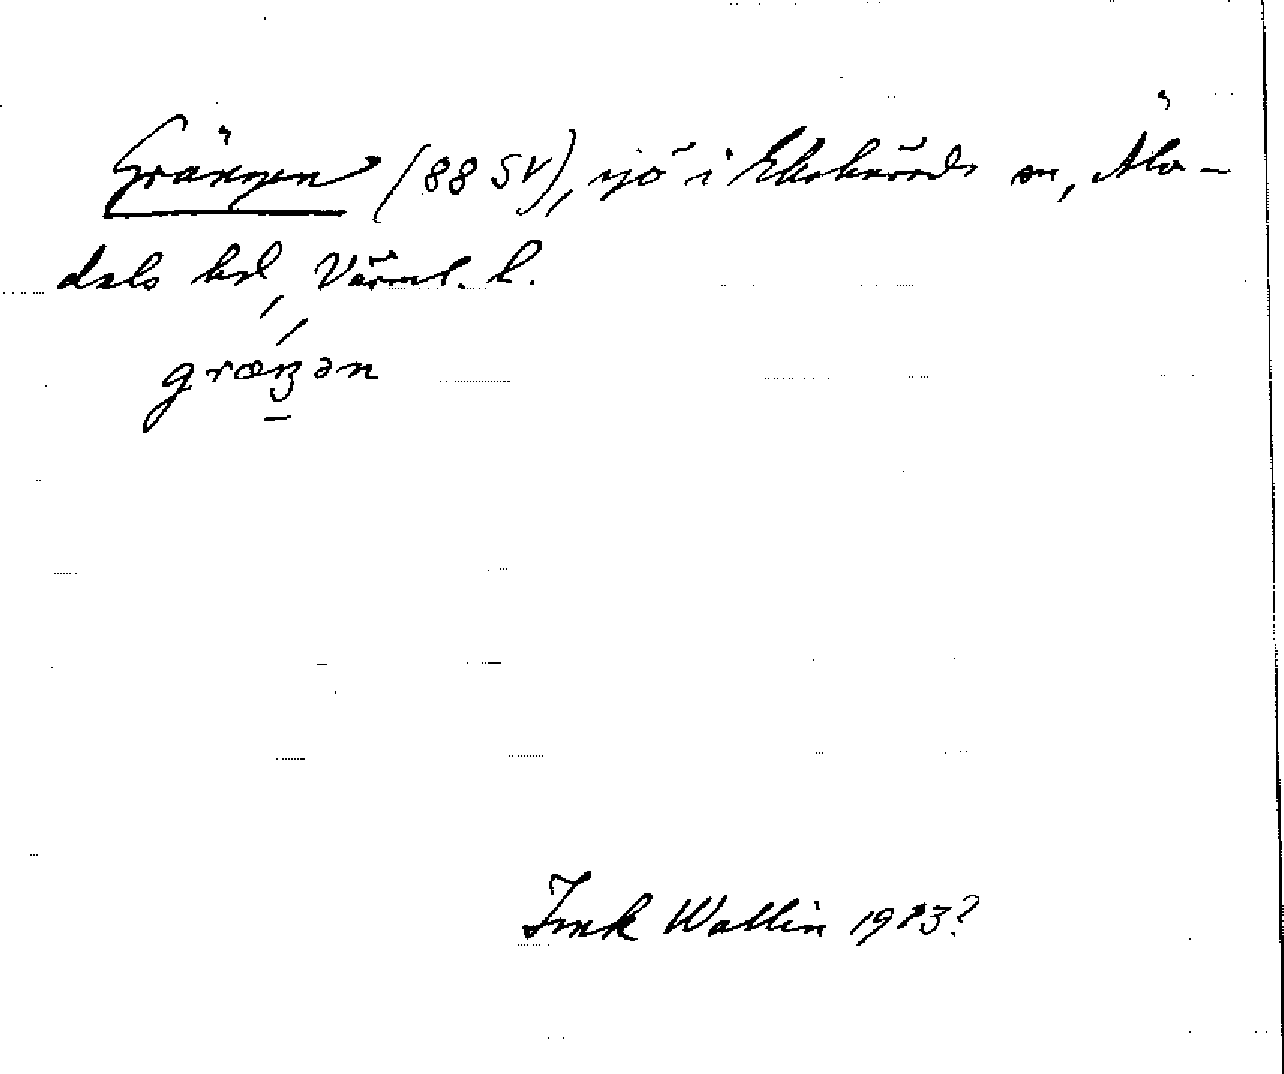 Grängen (88 SV), sjö i Ekshärads sn, Älv-
dals hd, Värml. l.
græŋən
Wallin 1913?